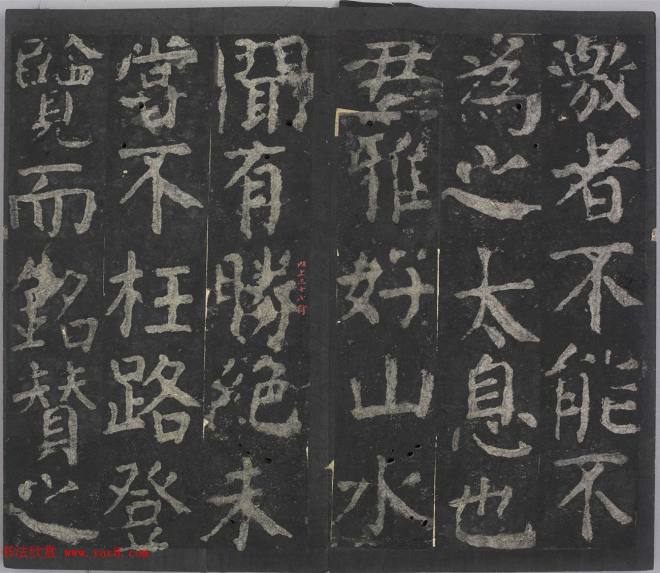 激者不能不
為之太息也
君雅好山水
聞有勝絕未
嘗不枉路登
覽而銘贊之
以上三十八行
书法欣赏 www.yac8.com